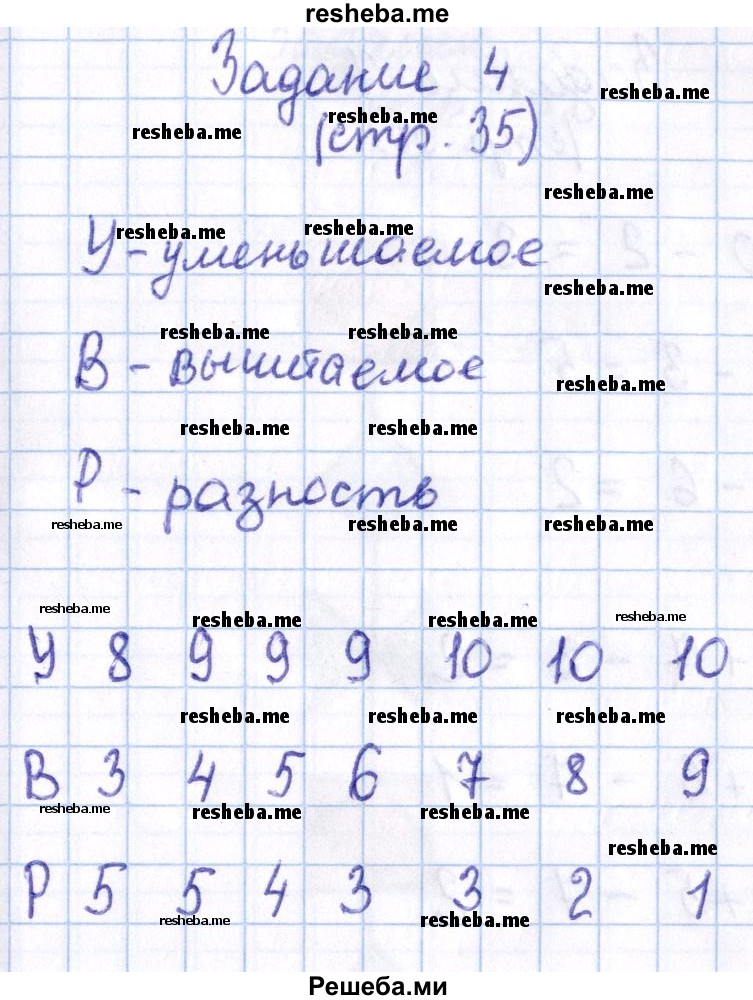 resheba.me
Задание 4
resheba.me
(стр. 35)
resheba.me
resheba.me
resheba.me
У - уменьшаемое
resheba.me
resheba.me
resheba.me
В - вычитаемое
resheba.me
resheba.me
resheba.me
resheba.me
Р - разность
resheba.me
resheba.me
resheba.me
resheba.me
resheba.me
resheba.me
resheba.me
У 8 9 9 9 10 10 10
resheba.me
resheba.me
resheba.me
В 3 4 5 6 7 8 9
resheba.me
resheba.me
resheba.me
resheba.me
Р 5 5 4 3 3 2 1
resheba.me
resheba.me
Решеба.ми